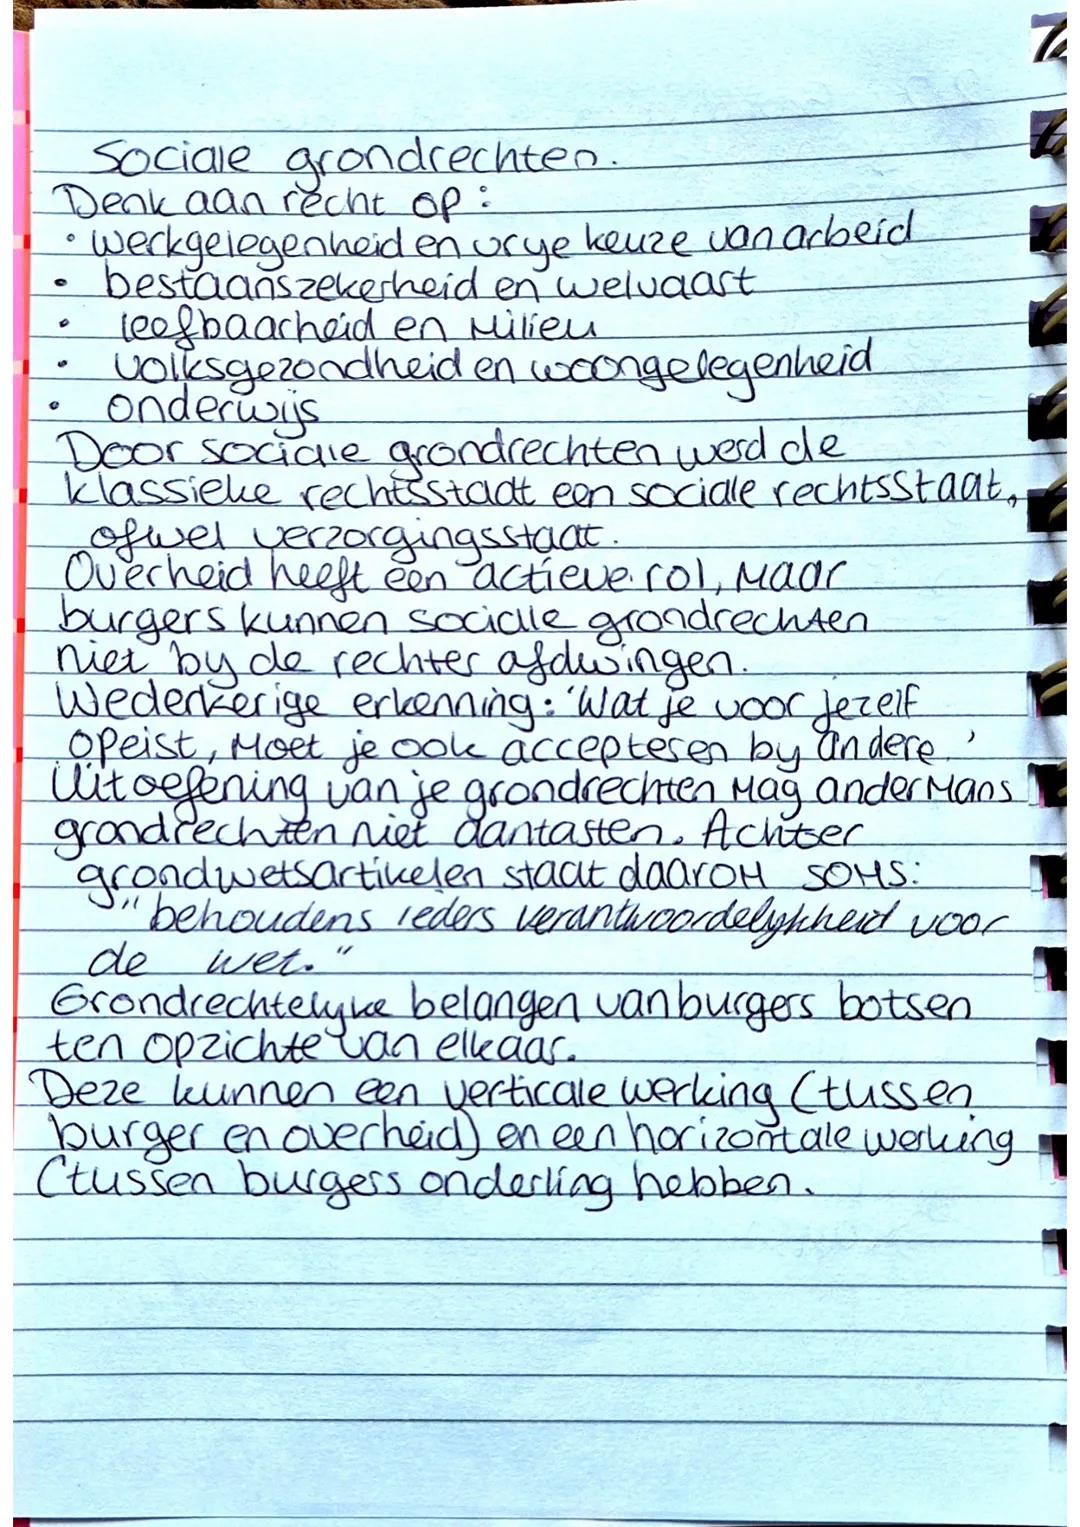 Sociale grondrechten.
Denk aan recht op:
• werkgelegenheid en vrye keuze van arbeid
• bestaanszekerheid en welvaart
• leefbaarheid en milieu
• volksgezondheid en woongelegenheid
• onderwijs
Door sociale grondrechten werd de
klassieke rechtsstaat een sociale rechtsstaat,
ofwel verzorgingsstaat.
Overheid heeft een actieve rol, maar
burgers kunnen sociale grondrechten
niet by de rechter afdwingen.
Wederkerige erkenning: 'Wat je voor jezelf
opeist, moet je ook accepteren by andere.'
Uitoefening van je grondrechten mag andermans
grondrechten niet aantasten. Achter
grondwetsartikelen staat daarom soms:
"behoudens ieders verantwoordelykheid voor
de wet."
Grondrechtelyke belangen van burgers botsen
ten opzichte van elkaar.
Deze kunnen een verticale werking (tussen
burger en overheid) en een horizontale werking
(tussen burgers onderling hebben.